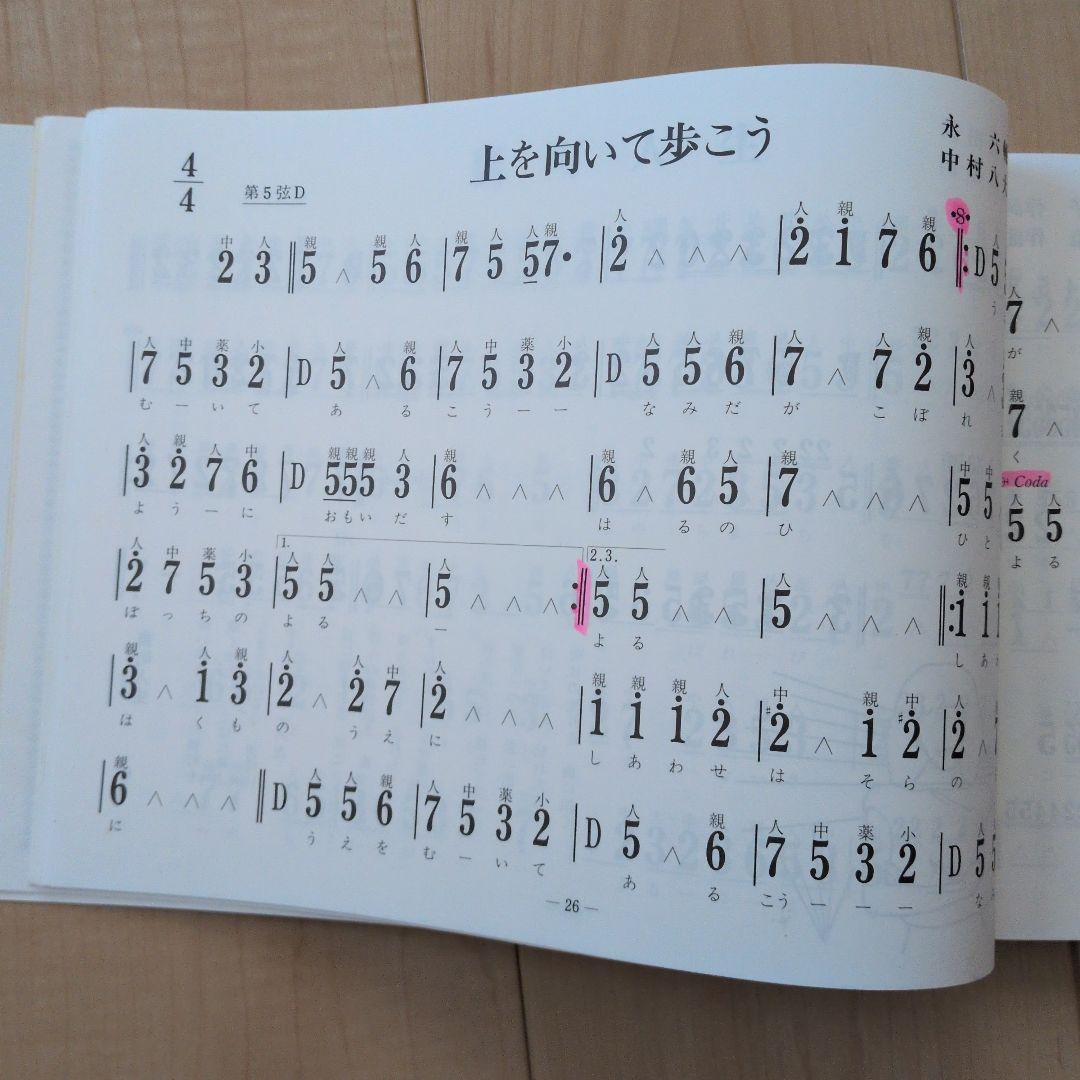 上を向いて歩こう
永 六
中村八
4/4
第5弦D
中 人 親 親 人 親 人 人親 人 人 親 人 親
2 3 ‖5 ^ 5 6 |7 5 57• |2̇ ^ ^ ^ |2̇ 1̇ 7 6 •8• ‖: D 5
う
人 中 薬 小 人 親 人 中 薬 小 人 人 親 人 人 親 人
|7 5 3 2 |D 5 ^ 6 |7 5 3 2 |D 5 5 6 |7 ^ 7 2̇ |3̇ ^
む ー い て あ る こ う ー ー な み だ が こ ぼ れ
人 親 人 中 親親親 人 親 親 親 人 親 中 中
|3̇ 2̇ 7 6 |D 555 3 |6 ^ ^ ^ |6 ^ 6 5 |7 ^ ^ ^ |5 5
よ う ー に おもい だ す は る の ひ ひ と
1. 2.3.
人 中 薬 小 人 人 人 人 人 人 親 親
|2̇ 7 5 3 |5 5 ^ ^ |5 ^ ^ ^ :‖ 5 5 ^ ^ |5 ^ ^ ^ ‖: 1̇ 1̇
ぼ っ ち の よ る ー よ る し あ
親 人 親 人 人 中 人 親 親 親 人 中 親 中 人
|3̇ ^ 1̇ 3̇ |2̇ ^ 2̇ 7 |2̇ ^ ^ ^ |1̇ 1̇ 1̇ 2̇ |♯2̇ ^ 1̇ ♯2̇ |2̇ ^
は く も の う え に し あ わ せ は そ ら の
親 人 人 親 人 中 薬 小 人 親 人 中 薬 小 人
|6 ^ ^ ^ ‖D 5 5 6 |7 5 3 2 |D 5 ^ 6 |7 5 3 2 |D 5 5
に う え を む ー い て あ る こう ー ー ー な
— 26 —
人
7 ^
が
親
7 ^
く
Coda
人 人
5 5
よ る